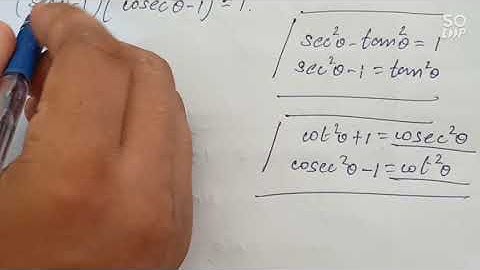 -1)( cosecθ-1) = 1.
sec²θ - tan²θ = 1
sec²θ - 1 = tan²θ
cot²θ + 1 = cosec²θ
cosec²θ - 1 = cot²θ